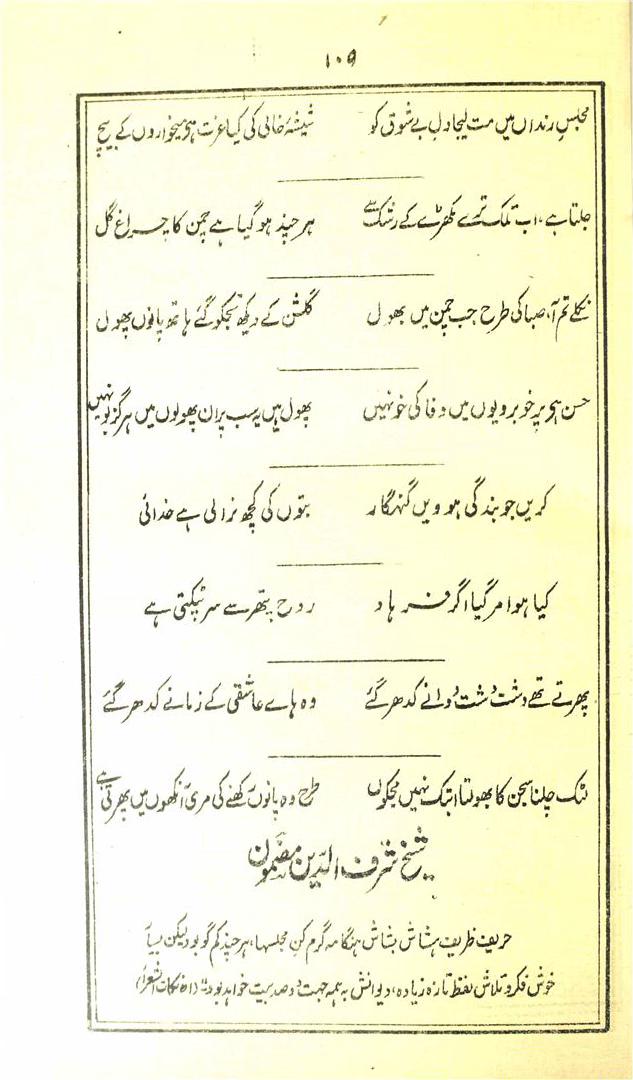 ۱۰۹
مجلسِ رنداں میں مت لیجا دلِ بے شوق کو شیشۂ خالی کی کیا عزت ہو میخواروں کے بیچ
جلتا ہے، اب تلک ترے مکھڑے کے رشک سے ہر چند ہو گیا ہے چمن کا چراغ گل
نکلے تم آ، صبا کی طرح جب چمن میں پھول گلشن کے دیکھ تجکو گئے ہاتھ پانوں پھول
حسن ہی پر خوبرویوں میں وفا کی خو نہیں پھول ہیں یہ سب پر ان پھولوں میں ہرگز بو نہیں
کریں جو بندگی ہوویں گنہگار بتوں کی کچھ نرالی ہے خدائی
کیا ہوا مر گیا اگر فرہاد روح پتھر سے سر پٹکتی ہے
پھرتے تھے دشت دشت دوانے کدھر گئے وہ ہاے عاشقی کے زمانے کدھر گئے
لٹک چلنا سجن کا بھولتا ابتک نہیں مجکوں طرح وہ پانوں رکھنے کی مری آنکھوں میں پھرتی ہے
شیخ شرف الدّین مضمون
حریف ظریف ہشاش بشاش ہنگامہ گرم کن مجلسہا، ہر چند کم گو بود لیکن بسیار
خوش فکر و تلاش لفظ تازہ زیادہ، دیوانش بہمہ جہت دو صد بیت خواہد بود" (از نکات الشعرا)